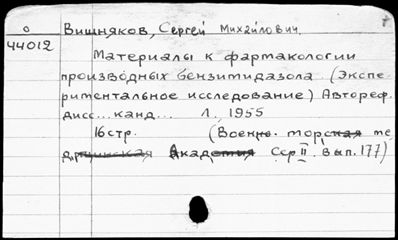 о Вишняков, Сергей Михайлович.
44012
Материалы к фартакологии
производных бензитидазола (Экспе-
риментальное исследование) Автореф.
дисс...канд... Л., 1955
16 стр. (Военно. торская те
дицинская Академия Сер II. вып. 177)